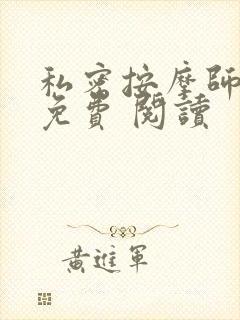 私密按摩師
免費 閱讀
黃進軍